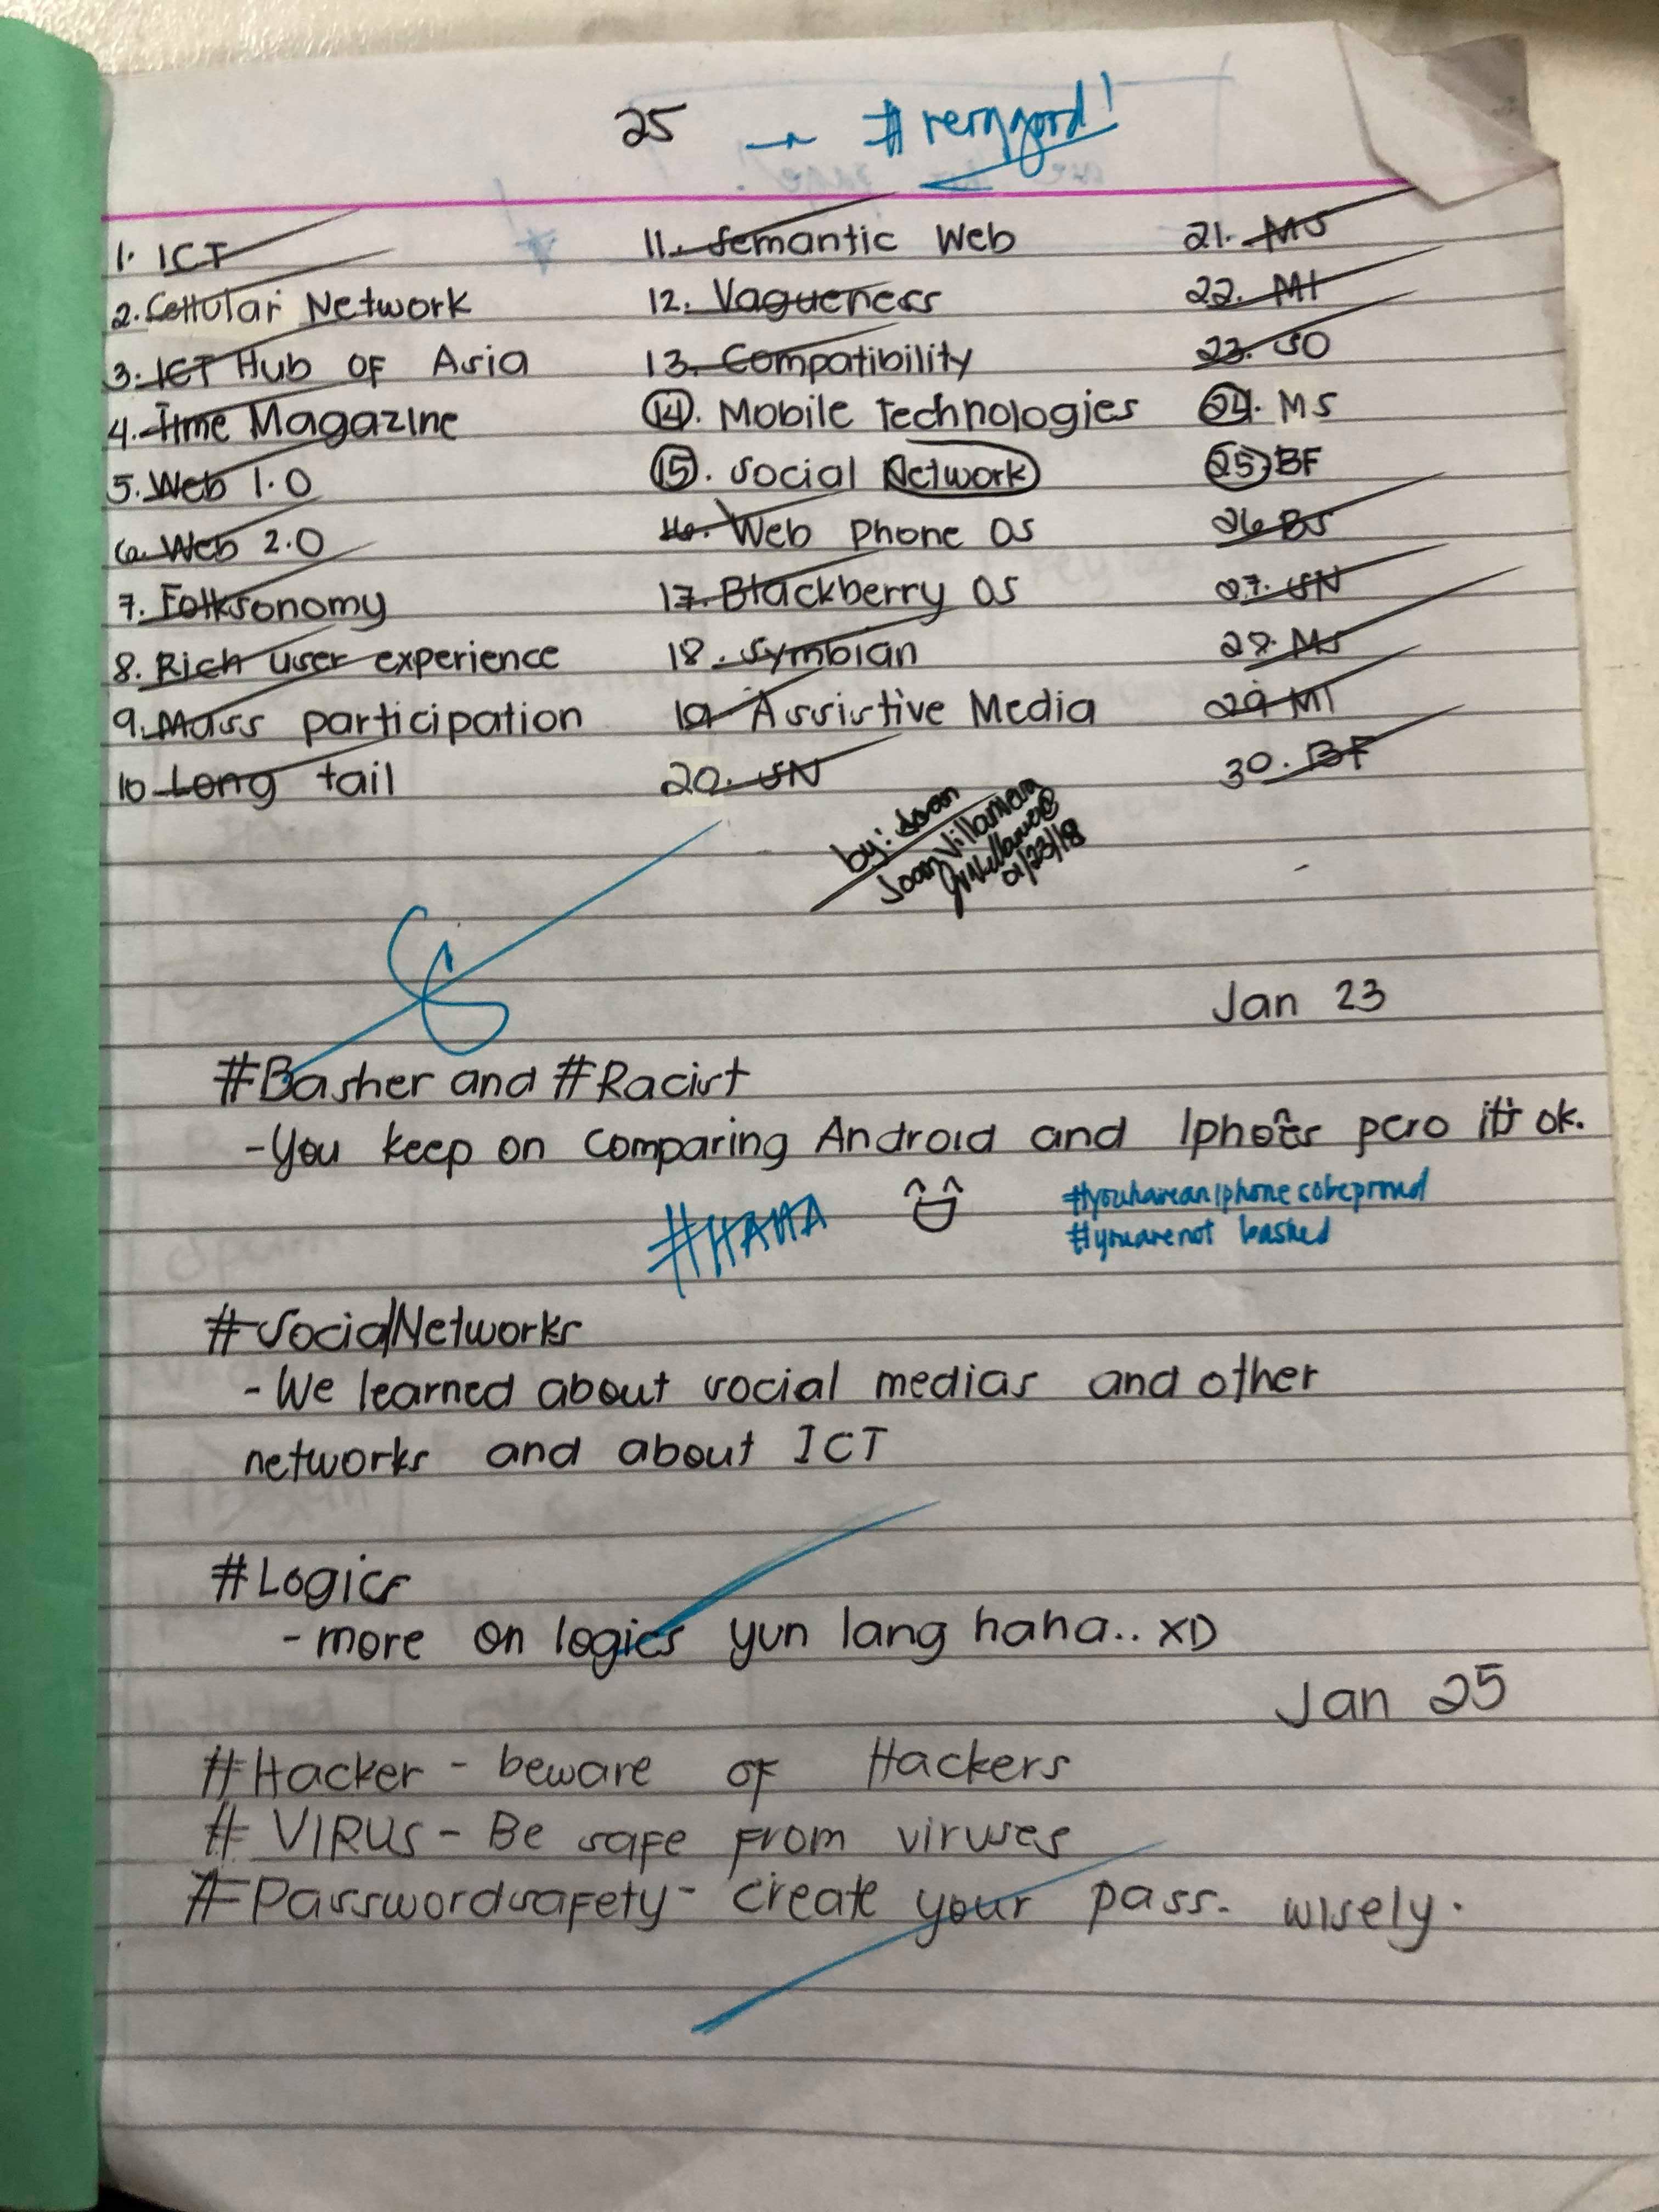 25 → #verygood!
1. ICT
2. Cellular Network
3. ICT Hub of Asia
4. Time Magazine
5. Web 1.0
6. Web 2.0
7. Folksonomy
8. Rich user experience
9. Mass participation
10. Long tail
11. Semantic Web
12. Vagueness
13. Compatibility
14. Mobile Technologies
15. Social Network
16. Web Phone OS
17. Blackberry OS
18. Symbian
19. Assistive Media
20. SN
21. MS
22. MI
23. SO
24. MS
25. BF
26 BS
27. SN
28. MS
29 MI
30. BF
by: Joan
Joan Villanueva
01/23/18
Jan 23
#Basher and #Racist
-You keep on comparing Android and Iphones pero it's ok.
#HAHA
#youhaveanIphonesobeproud
#youarenot bashed
#SocialNetworks
- We learned about social medias and other
networks and about ICT
#Logics
- more on logics yun lang haha.. XD
Jan 25
#Hacker - beware of Hackers
# VIRUS - Be safe from viruses
#Passwordsafety - create your pass. wisely.